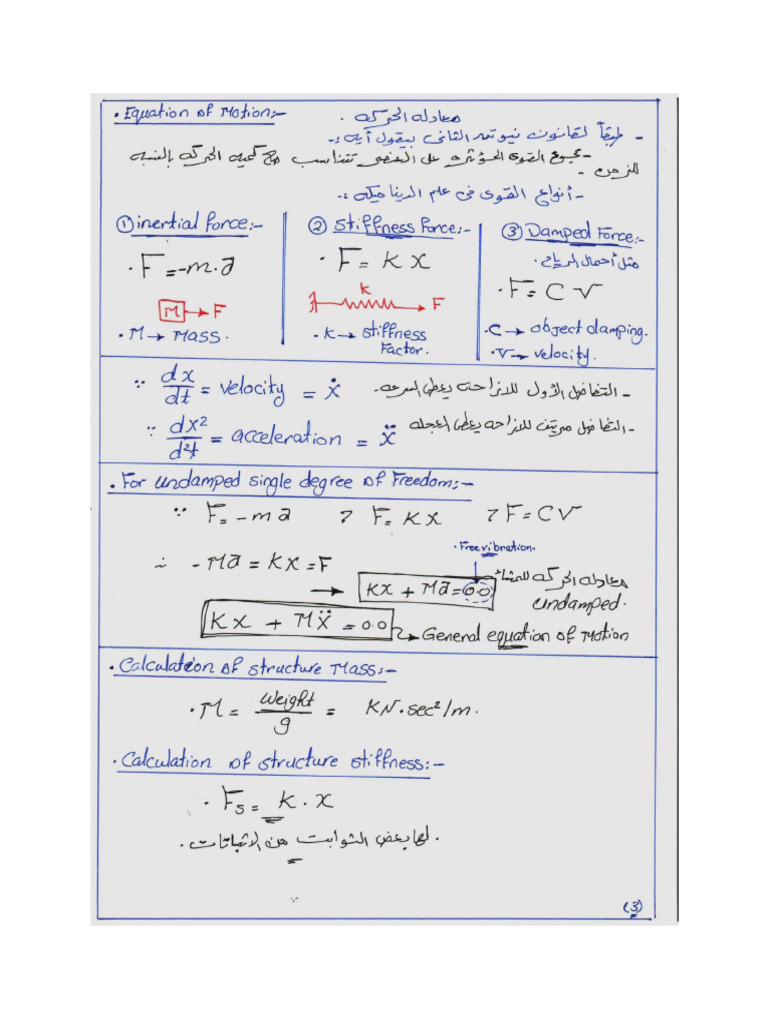 . Equation of Motion:-
معادله الحركه .
- طبقاً لقانون نيوتن الثانى بيقول أيه :-
- مجموع القوى المؤثره على العنصر تتناسب مع كميه الحركه بالنسبه
للزمن -
- أنواع القوى فى علم الديناميكه :-
① inertial force:-
. F = -m.a
M → F
. M → Mass.
② Stiffness Force:-
. F = K x
k
F
. K → stiffness
Factor.
③ Damped Force:-
مثل أحمال الرياح .
. F = C V
. C → object damping.
. V → velocity.
∵ dx/dt = velocity = ẋ
- التفاضل الأول للازاحه يعطى السرعه .
∵ dx²/d²t = acceleration = ẍ
- التفاضل مرتين للازاحه يعطى العجله
. For undamped single degree of Freedom:-
∵ F = -ma , F = Kx , F = CV
. Free vibration.
∴ - Ma = Kx = F
→ Kx + Ma = 0.0
معادله الحركه للمنشأ
undamped.
Kx + Mẍ = 0.0
→ General equation of Motion
. Calculation of structure Mass:-
. M = Weight/g = KN.sec²/m.
. Calculation of structure stiffness:-
. Fs = K . x
. لها بعض الثوابت من الاثباتات .
(3)